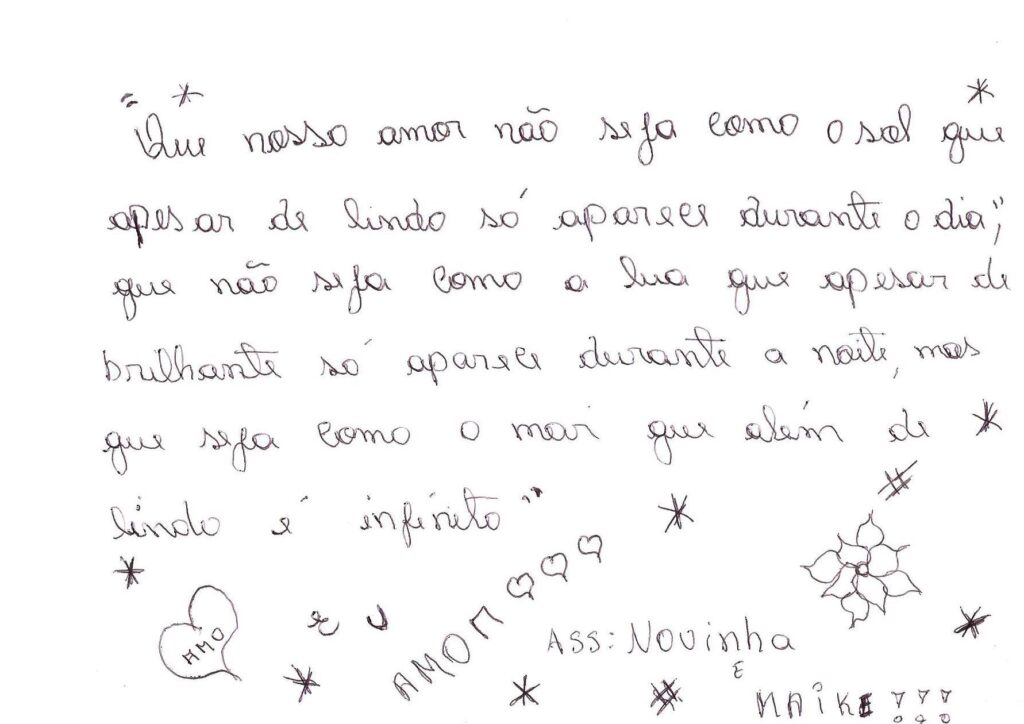 "Que nosso amor não seja como o sol que
apesar de lindo só aparece durante o dia;"
que não seja como a lua que apesar de
brilhante só aparece durante a noite, mas
que seja como o mar que além de
lindo é infinito"
AMO
eu
AMOR
ASS: Novinha
E
MAiKE !!!